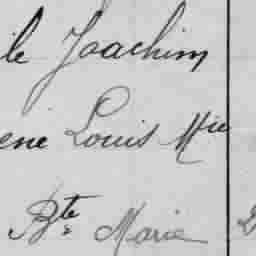 ile Joachim
ene Louis Mie
Bte Marie 2